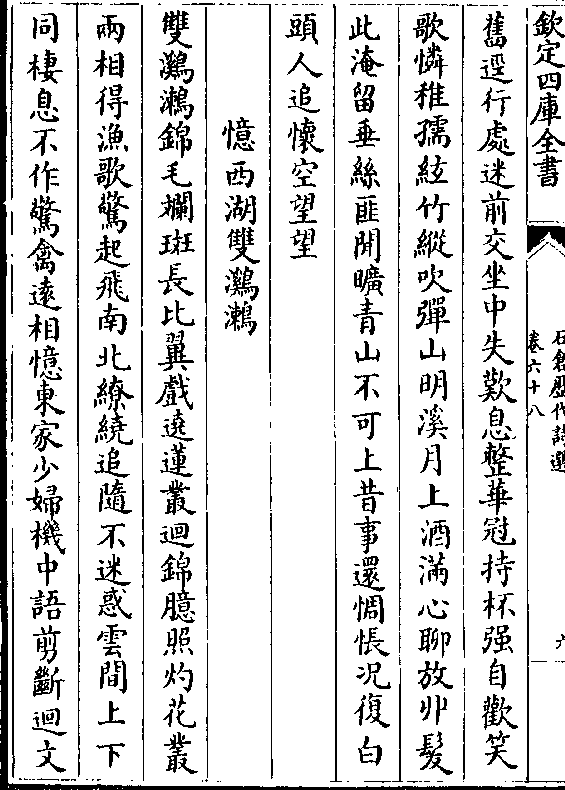 欽定四庫全書
石倉歷代詩選
卷六十八
六
舊逕行處迷前交坐中失歎息整華冠持杯强自歡笑
歌憐稚孺絃竹縱吹彈山明溪月上酒滿心聊放丱髮
此淹留垂絲匪閒曠青山不可上昔事還惆悵况復白
頭人追懷空望望
憶西湖雙鸂鶒
雙鸂鶒錦毛斕斑長比翼戲遶蓮叢迴錦臆照灼花叢
兩相得漁歌驚起飛南北繚繞追隨不迷惑雲間上下
同棲息不作驚禽遠相憶東家少婦機中語剪斷迴文